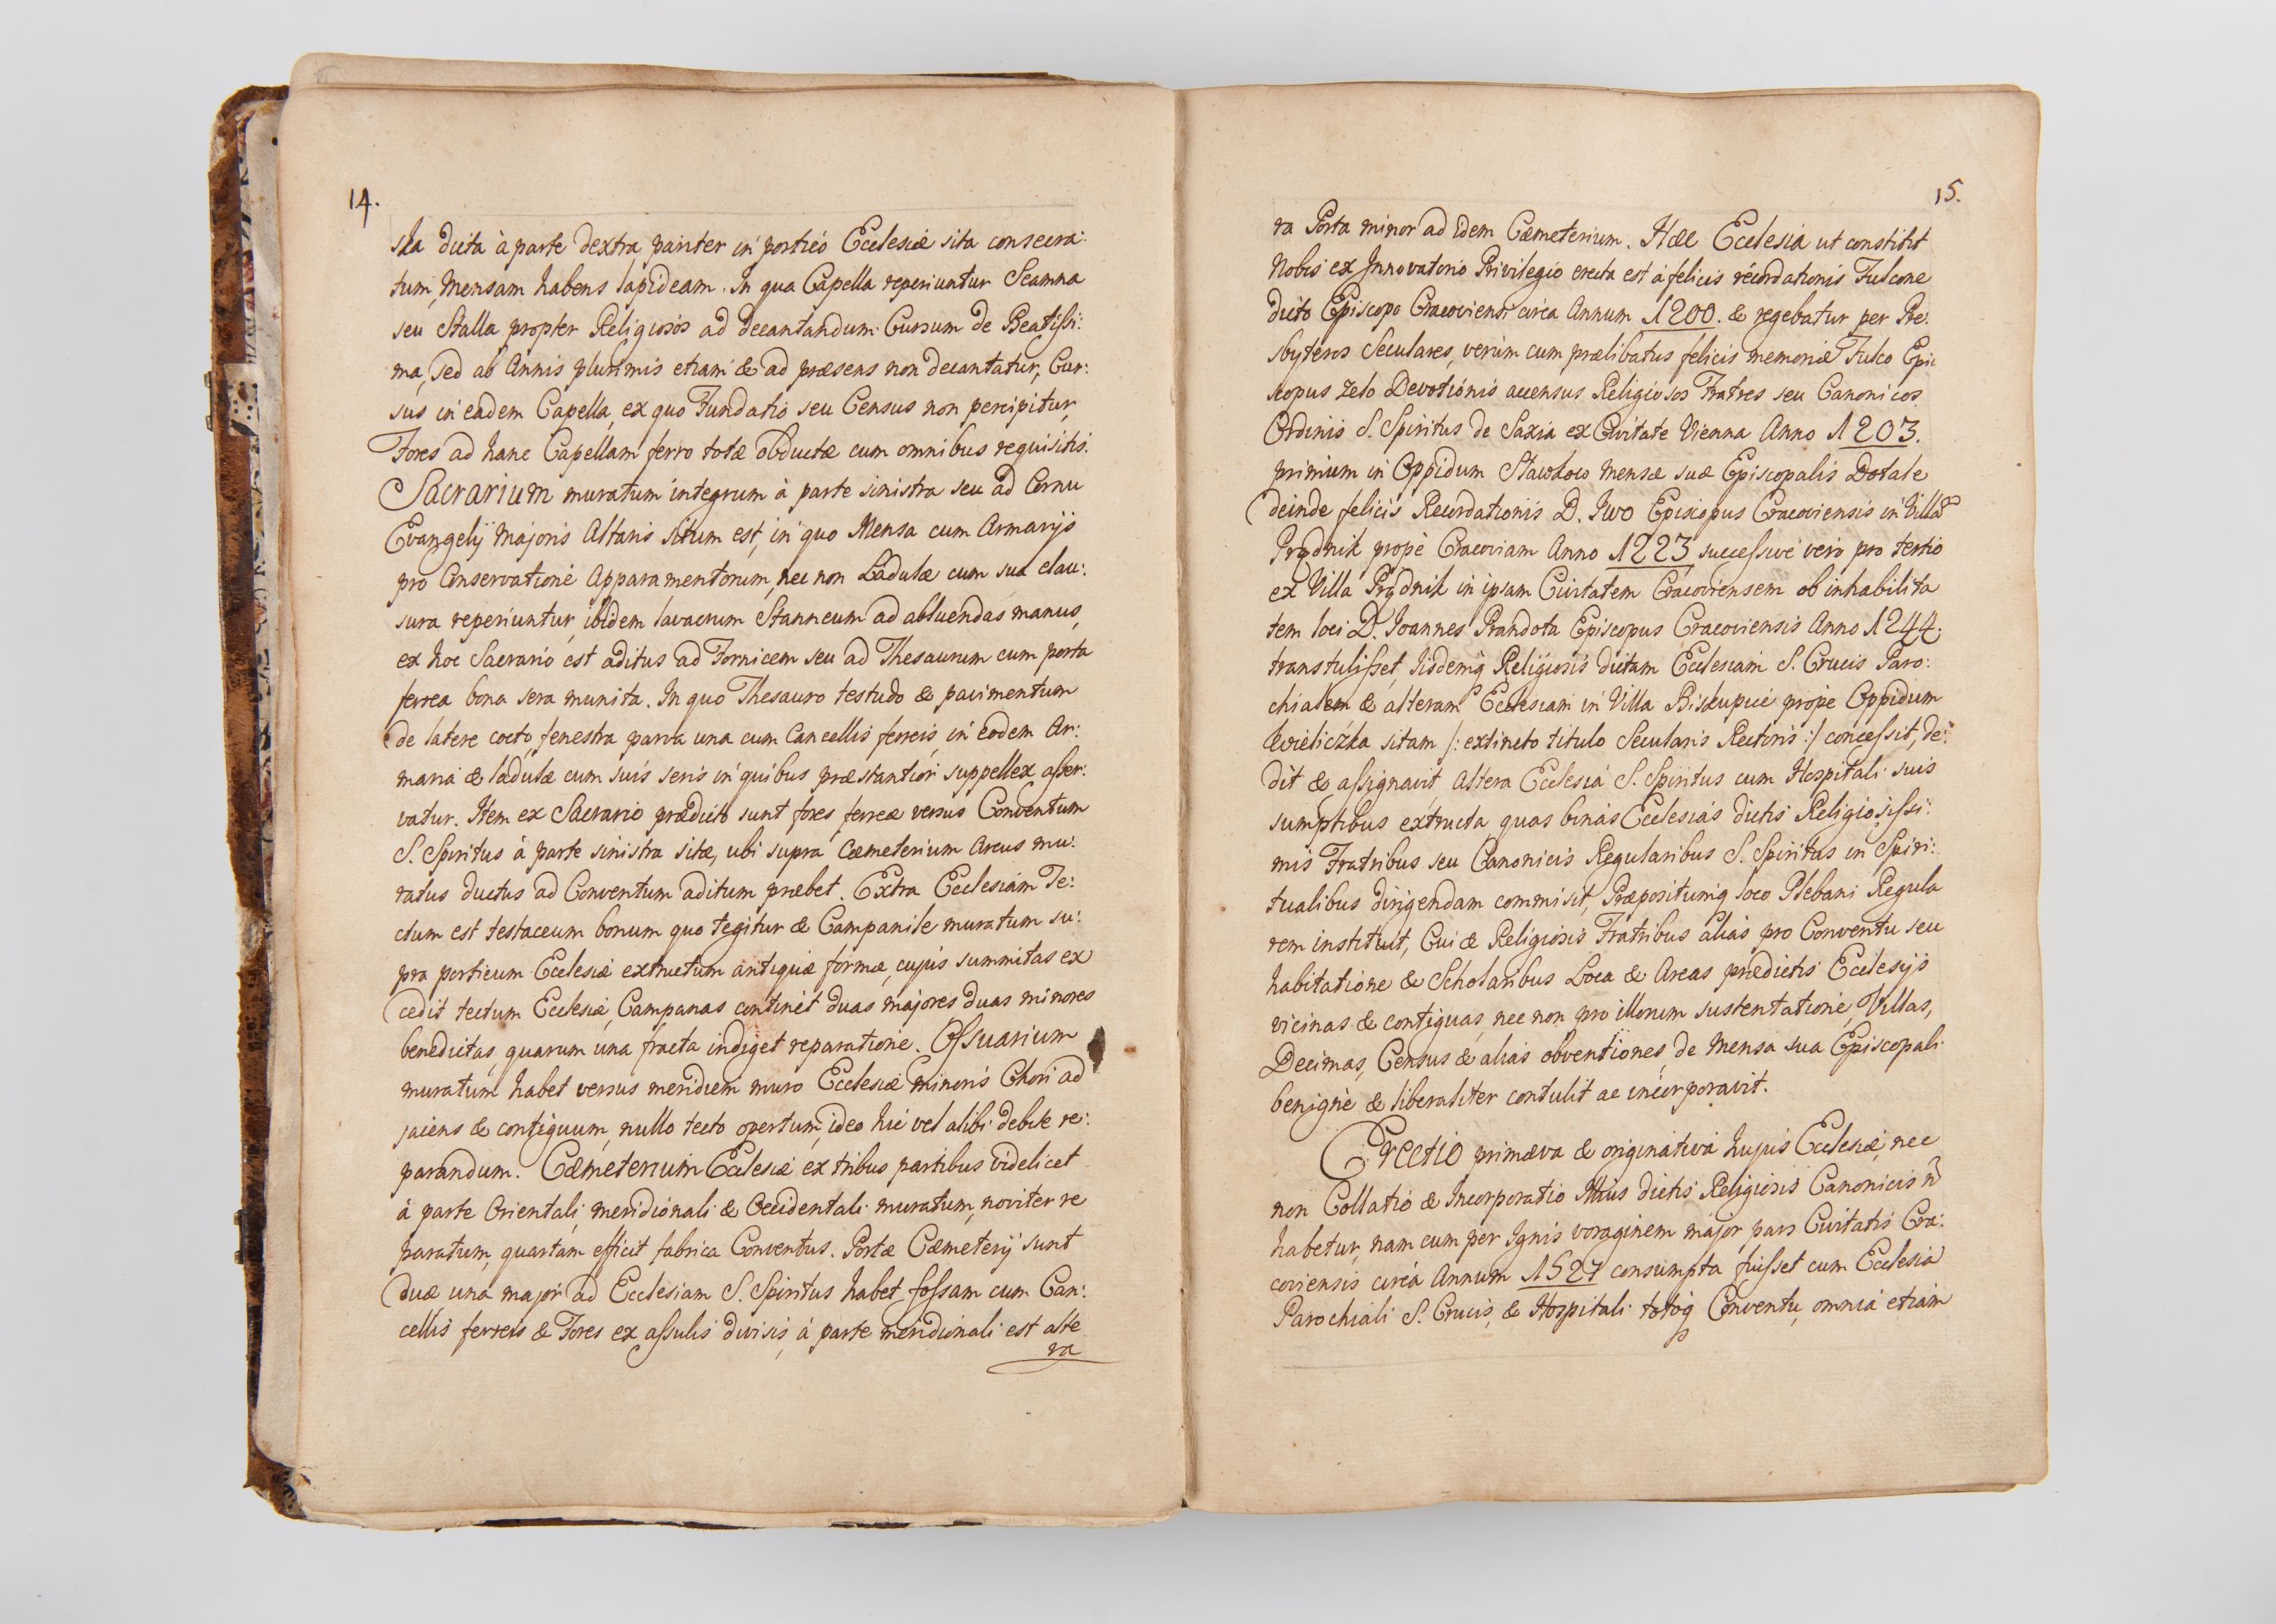 14.
ska dicta à parte dextra pariter in porticó Ecclesiæ sita consecra:
tum, Mensam habens lapideam. In qua Capella reperiuntur Scamna
seu Stalla propter Religiosos ad decantandum Cursum de Beatissi:
ma, sed ab Annis plurimis etiam & ad præsens non decantatur, Cur:
sus in eadem Capella, ex quo Fundatio seu Census non percipitur,
Fores ad hanc Capellam ferro totæ obductæ cum omnibus requisitis.
Sacrarium muratum integrum à parte sinistra seu ad Cornu
Evangelÿ Majoris Altaris situm est, in quo Mensa cum Armarÿs
pro Conservatione Apparamentorum, nec non Ladulæ cum sua clau:
sura reperiuntur, ibidem lavacrum Stanneum ad abluendas manus,
ex hoc Sacrario est aditus ad Fornicem seu ad Thesaurum cum porta
ferrea bona sera munita. In quo Thesauro testudo & pavimentum
de latere cocto, fenestra parva una cum Cancellis ferreis, in eodem Ar:
maria & ladulæ cum suis seris in quibus præstantior suppellex asser:
vatur. Item ex Sacrario prædicto sunt fores ferreæ versus Conventum
S. Spiritus à parte sinistra sitæ, ubi supra Cæmeterium Arcus mu:
ratus ductus ad Conventum aditum præbet. Extra Ecclesiam Te:
ctum est testaceum bonum quo tegitur & Campanile muratum su:
pra porticum Ecclesiæ extructum antiquæ formæ, cujus summitas ex
cedit tectum Ecclesiæ, Campanas continet duas majores duas minores
benedictas, quarum una fracta indiget reparatione. Ossuarium
muratum habet versus meridiem muro Ecclesiæ minoris Chori ad
jaiens & contiguum, nullo tecto opertum, ideo hic vel alibi debite re:
parandum. Cæmeterium Ecclesiæ ex tribus partibus videlicet
à parte Orientali, meridionali & Occidentali muratum, noviter re
paratum, quartam efficit fabrica Conventus. Portæ Cæmeterÿ sunt
duæ una major ad Ecclesiam S. Spiritus habet fossam cum Can:
cellis ferreis & Fores ex assulis divisis, à parte meridionali est alte
ra
15.
ra Porta minor ad idem Cæmeterium. Hæc Ecclesia ut constitit
Nobis ex Innovatorio Privilegio erecta est à felicis recordationis Fulcone
dicto Episcopo Cracoviensi circa Annum 1200. & regebatur per Pre:
sbyteros Seculares, verùm cum prælibatus felicis memoriæ Fulco Epi:
scopus zelo Devotionis accensus Religiosos Fratres seu Canonicos
Ordinis S. Spiritus de Saxia ex Civitate Vienna Anno 1203.
primum in Oppidum Stawkow Mensæ suæ Episcopalis Dotale
deinde felicis Recordationis D. Iwo Episcopus Cracoviensis in Villa
Prądnik propè Cracoviam Anno 1223 successivè verò pro tertio
ex Villa Prądnik in ipsam Civitatem Cracoviensem ob inhabilita
tem loci D. Joannes Prandota Episcopus Cracoviensis Anno 1244.
transtulisset, Iisdemq Religiosis dictam Ecclesiam S. Crucis Paro:
chialem & alteram Ecclesiam in Villa Biskupice propè Oppidum
Wieliczka sitam /: extincto titulo Secularis Rectoris :/ concessit, de:
dit & assignavit Altera Ecclesia S. Spiritus cum Hospitali suis
sumptibus extructa, quas binas Ecclesias dictis Religiosissi:
mis Fratribus seu Canonicis Regularibus S. Spiritus in Spiri:
tualibus dirigendam commisit, Præpositumq loco Plebani Regula
rem instituit, Cui & Religiosis Fratribus aliàs pro Conventu seu
habitatione & Scholaribus Loca & Areas prædictis Ecclesÿs
vicinas & contiguas, nec non pro illorum sustentatione, Villas,
Decimas, Census & alias obventiones, de Mensa sua Episcopali
benignè & liberaliter contulit ac incorporavit.
Erectio primæva & originativa hujus Ecclesiæ, nec
non Collatio & Incorporatio Illius dictis Religiosis Canonicis ñ
habetur, nam cum per Ignis voraginem major pars Civitatis Cra:
coviensis circa Annum 1527 consumpta fuisset cum Ecclesia
Parochiali S. Crucis, & Hospitali totóq Conventu, omnia etiam